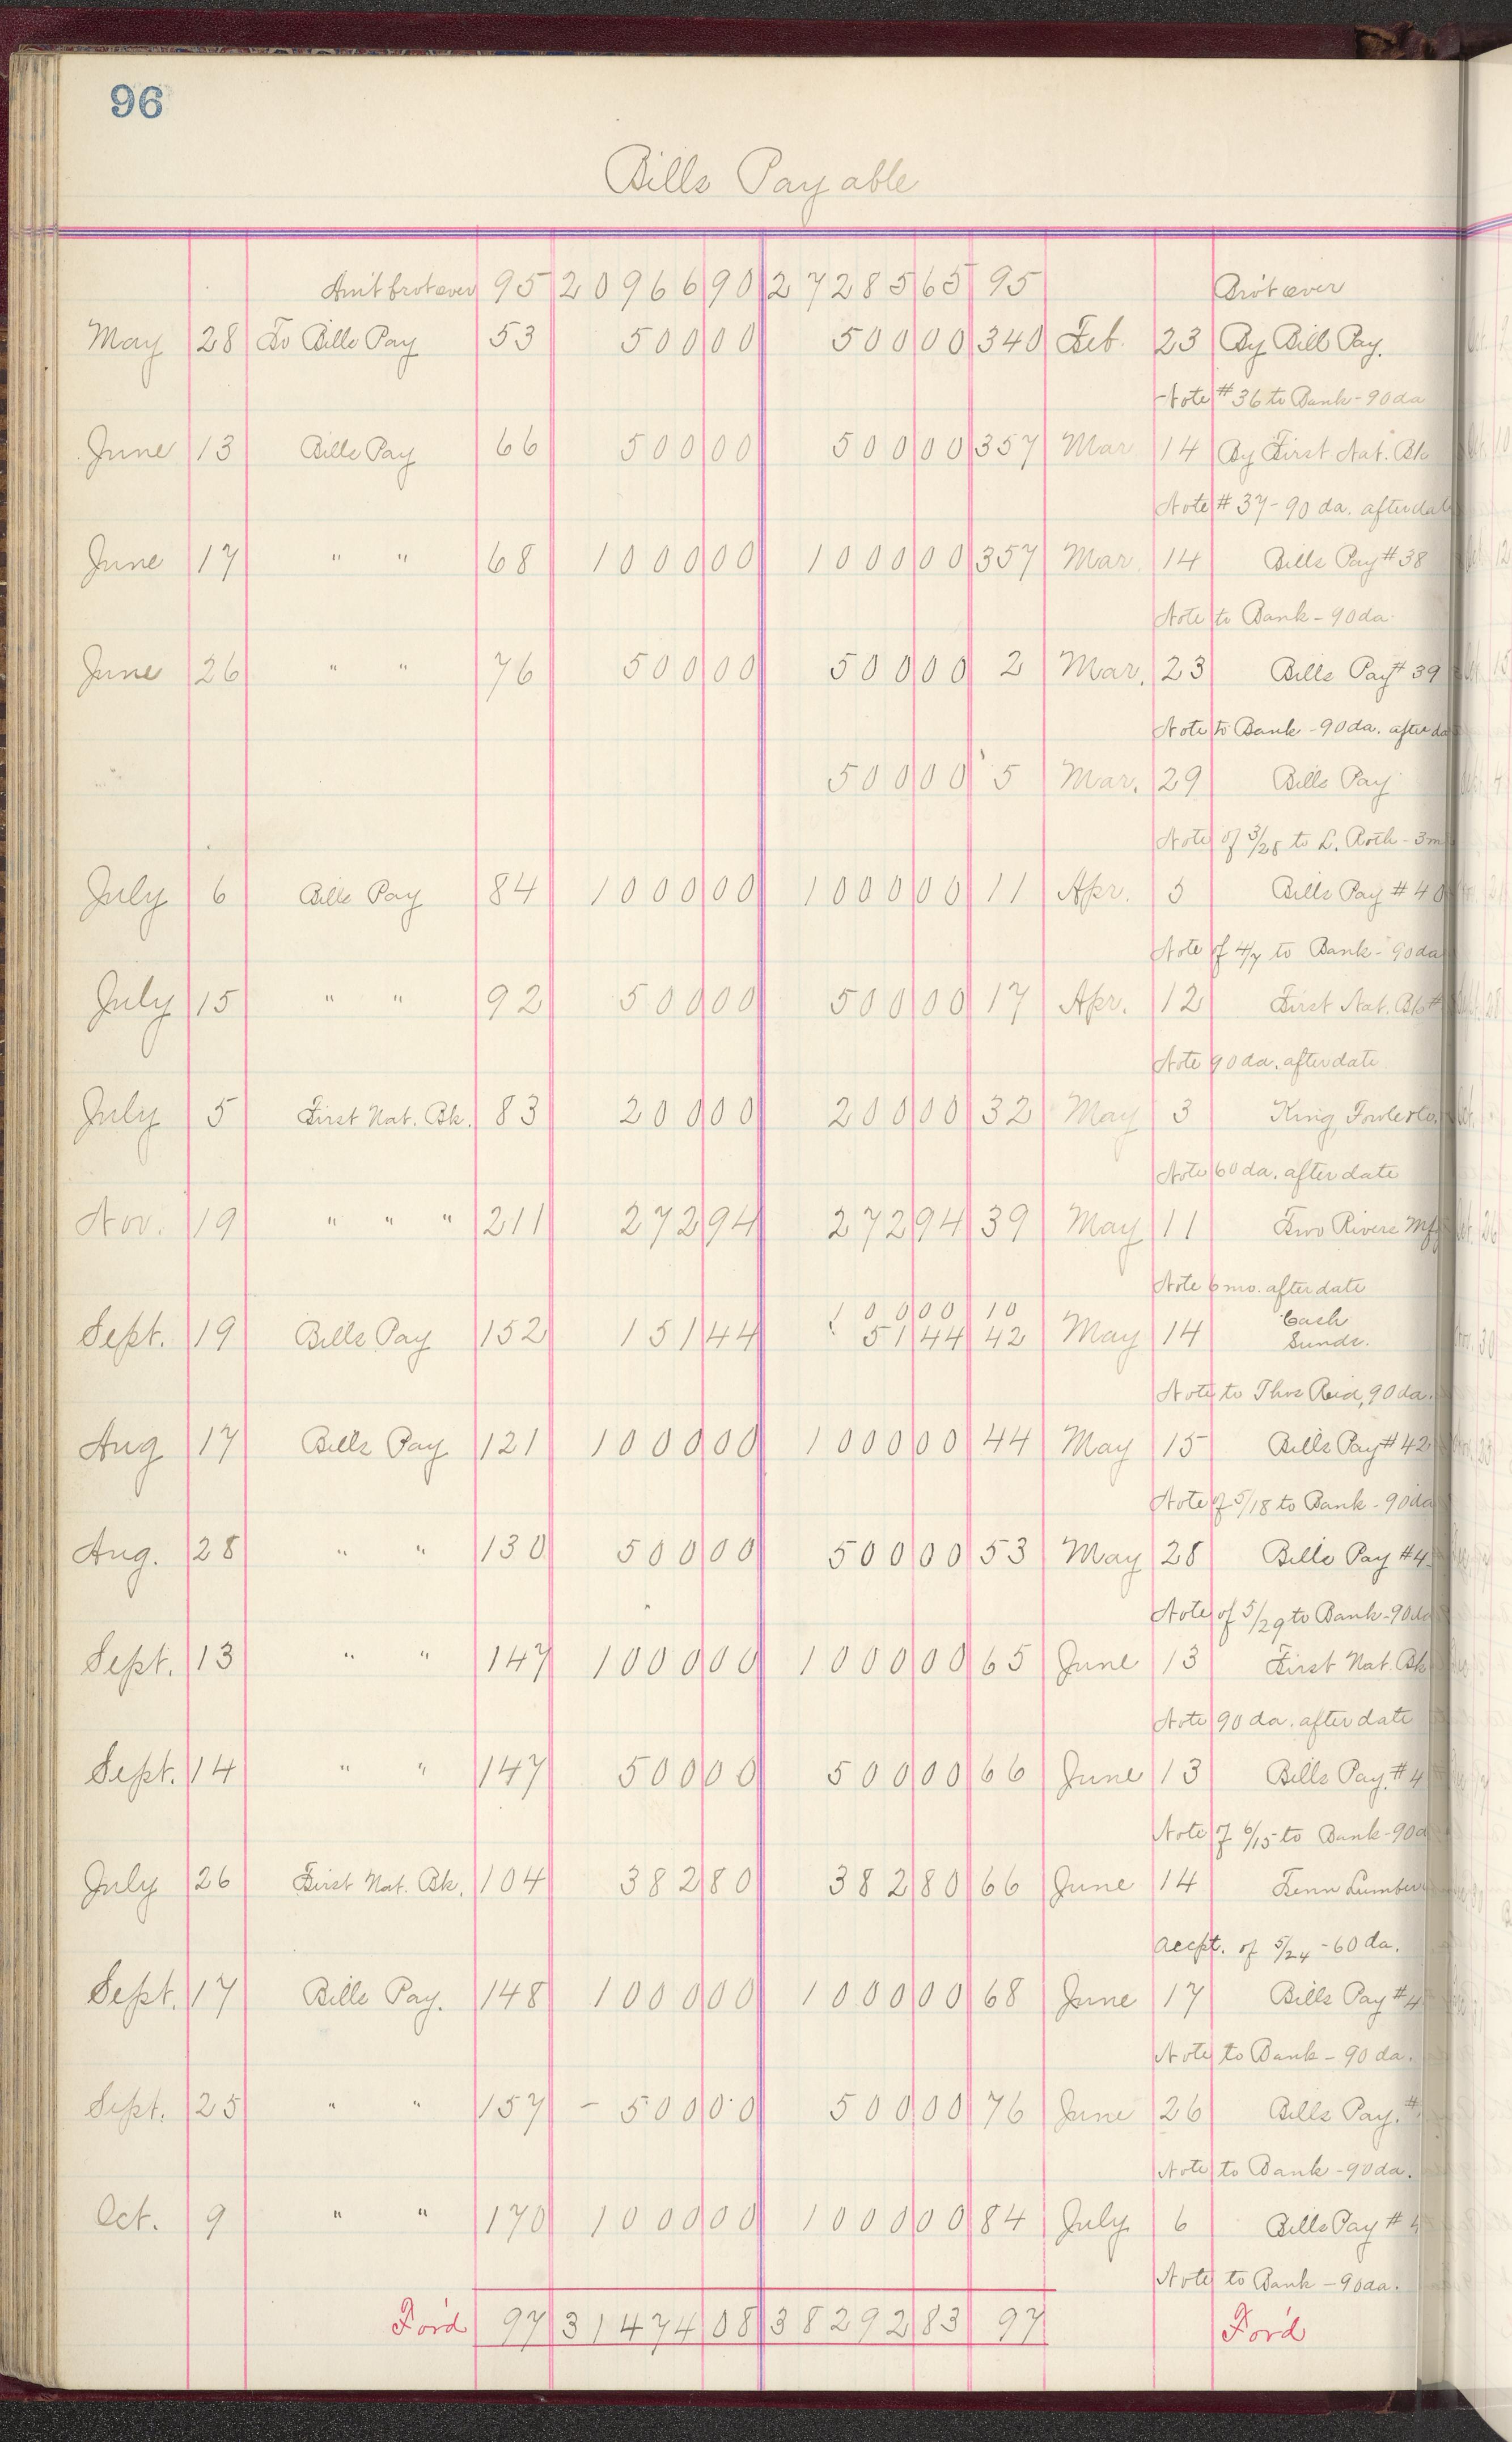 96
Bills Payable
Am't brot over 95 20966 90 27285 65 95 Brot over
May 28 To Bills Pay 53 500 00 500 00 340 Feb. 23 By Bill Pay.
Note # 36 to Bank - 90 da
June 13 Bills Pay 66 500 00 500 00 357 Mar 14 By First Nat. Bk
Note # 37 - 90 da. after dat
June 17 " " 68 1000 00 1000 00 357 Mar. 14 Bills Pay # 38
Note to Bank - 90 da.
June 26 " " 76 500 00 500 00 2 Mar. 23 Bills Pay # 39
Note to Bank - 90 da. after da
500 00 5 Mar. 29 Bills Pay
Note of 3/28 to L. Roth - 3 m
July 6 Bills Pay 84 1000 00 1000 00 11 Apr. 5 Bills Pay # 40
Note of 4/7 to Bank - 90 da
July 15 " " 92 500 00 500 00 17 Apr. 12 First Nat. Bk #
Note 90 da. after date
July 5 First Nat. Bk. 83 200 00 200 00 32 May 3 King, Fowle & Co.
Note 60 da. after date
Nov. 19 " " " 211 272 94 272 94 39 May 11 Two Rivers Mf
Note 6 mo. after date
100 00 10 Cash
Sept. 19 Bills Pay 152 151 44 51 44 42 May 14 Sunds.
Note to Thos Reid, 90 da.
Aug 17 Bills Pay 121 1000 00 1000 00 44 May 15 Bills Pay # 42
Note of 5/18 to Bank - 90 da
Aug. 28 " " 130 500 00 500 00 53 May 28 Bills Pay # 4
Note of 5/29 to Bank - 90 da
Sept. 13 " " 147 1000 00 1000 00 65 June 13 First Nat. Bk
Note 90 da. after date
Sept. 14 " " 147 500 00 500 00 66 June 13 Bills Pay. # 4
Note of 6/15 to Bank - 90 d
July 26 First Nat. Bk. 104 382 80 382 80 66 June 14 Tenn Lumber
Accpt. of 5/24 - 60 da.
Sept. 17 Bills Pay. 148 1000 00 1000 00 68 June 17 Bills Pay # 4
Note to Bank - 90 da.
Sept. 25 " " 157 - 500 00 500 00 76 June 26 Bills Pay. #
Note to Bank - 90 da.
Oct. 9 " " 170 1000 00 1000 00 84 July 6 Bills Pay # 4
Note to Bank - 90 da.
For'd 97 31474 08 38292 83 97 For'd